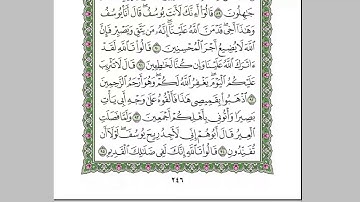 جَٰهِلُونَ ٨٩ قَالُوٓا۟ أَءِنَّكَ لَأَنتَ يُوسُفُ ۖ قَالَ أَنَا۠ يُوسُفُ
وَهَٰذَآ أَخِى ۖ قَدْ مَنَّ ٱللَّهُ عَلَيْنَآ ۖ إِنَّهُۥ مَن يَتَّقِ وَيَصْبِرْ فَإِنَّ
ٱللَّهَ لَا يُضِيعُ أَجْرَ ٱلْمُحْسِنِينَ ٩٠ قَالُوا۟ تَٱللَّهِ لَقَدْ
ءَاثَرَكَ ٱللَّهُ عَلَيْنَا وَإِن كُنَّا لَخَٰطِـِٔينَ ٩١ قَالَ لَا تَثْرِيبَ
عَلَيْكُمُ ٱلْيَوْمَ ۖ يَغْفِرُ ٱللَّهُ لَكُمْ ۖ وَهُوَ أَرْحَمُ ٱلرَّٰحِمِينَ
٩٢ ٱذْهَبُوا۟ بِقَمِيصِى هَٰذَا فَأَلْقُوهُ عَلَىٰ وَجْهِ أَبِى يَأْتِ
بَصِيرًا وَأْتُونِى بِأَهْلِكُمْ أَجْمَعِينَ ٩٣ وَلَمَّا فَصَلَتِ
ٱلْعِيرُ قَالَ أَبُوهُمْ إِنِّى لَأَجِدُ رِيحَ يُوسُفَ ۖ لَوْلَآ أَن
تُفَنِّدُونِ ٩٤ قَالُوا۟ تَٱللَّهِ إِنَّكَ لَفِى ضَلَٰلِكَ ٱلْقَدِيمِ ٩٥
٢٤٦